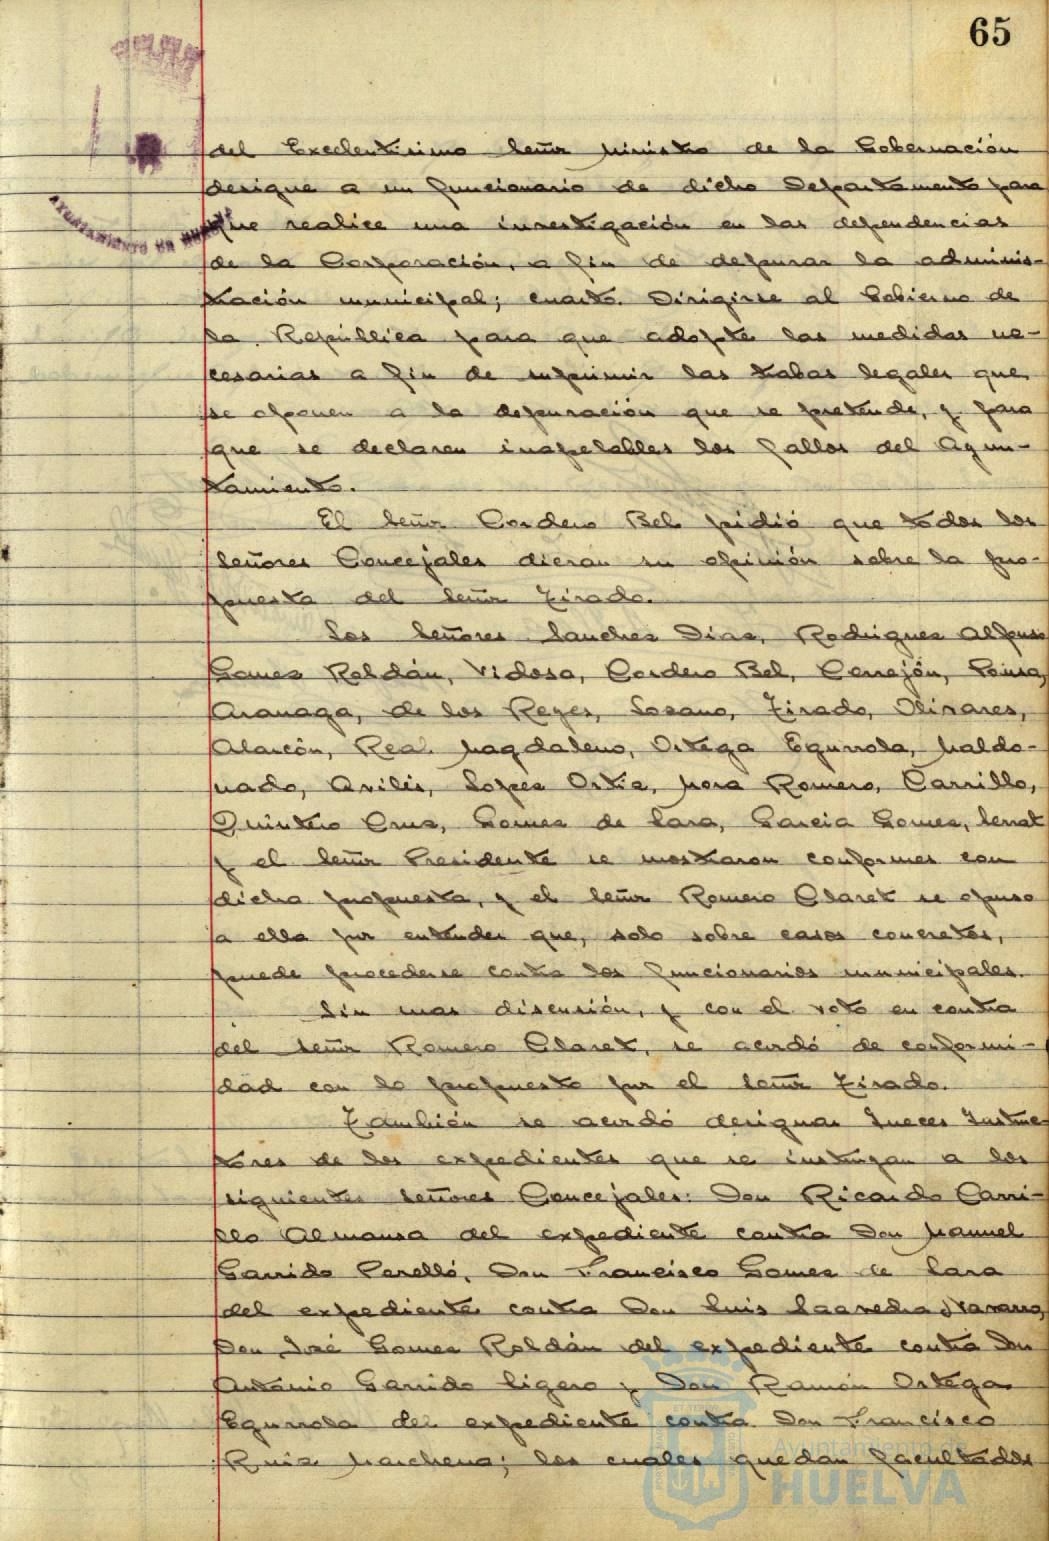 65
AYUNTAMIENTO DE HUELVA
del Excelentisimo Señor Ministro de la Gobernación
designe a un funcionario de dicho Departamento para
que realice una investigación en las dependencias
de la Corporación, a fin de depurar la adminis-
tración municipal; cuarto. Dirigirse al Gobierno de
la República para que adopte las medidas ne-
cesarias a fin de suprimir las trabas legales que
se oponen a la depuración que se pretende, y para
que se declaren inapelables los fallos del Ayun-
tamiento.
El Señor Cordero Bel pidió que todos los
Señores Concejales dieran su opinión sobre la pro-
puesta del Señor Tirado.
Los Señores Sanchez Diaz, Rodriguez Alfonso
Gomez Roldán, Vidosa, Cordero Bel, Cerrejón, Ponsa,
Aranaga, de los Reyes, Lozano, Tirado, Olivares,
Alarcón, Real, Magdaleno, Ortega Egurrola, Maldo-
nado, Avilés, Lopez Ortiz, Mora Romero, Carrillo,
Quintero Cruz, Gomez de Lara, Garcia Gomez, Serrat
y el Señor Presidente se mostraron conformes con
dicha propuesta, y el Señor Romero Claret se opuso
a ella por entender que, solo sobre casos concretos,
puede procederse contra los funcionarios municipales.
Sin mas discusión, y con el voto en contra
del Señor Romero Claret, se acordó de conformi-
dad con lo propuesto por el Señor Tirado.
También se acordó designar Jueces Instruc-
tores de los expedientes que se instruyan a los
siguientes señores Concejales: Don Ricardo Carri-
llo Almansa del expediente contra Don Manuel
Garrido Perelló, Don Francisco Gomez de Lara
del expediente contra Don Luis Saavedra Navarro,
Don José Gomez Roldán del expediente contra Don
Antonio Garrido Ligero y Don Ramón Ortega
Egurrola del expediente contra Don Francisco
Ruiz Marchena; los cuales quedan facultados
Ayuntamiento de
HUELVA